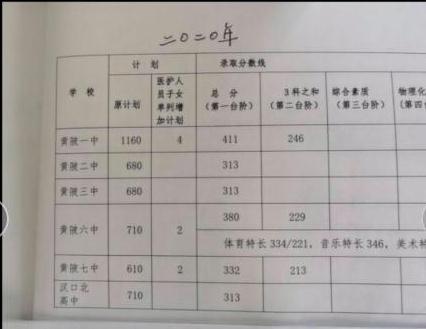 二〇二〇年
学校 计划 录取分数线
原计划 医护人员子女单列增加计划 总分（第一台阶） 3科之和（第二台阶） 综合素质（第三台阶） 物理化（第四
黄陂一中 1160 4 411 246
黄陂二中 680 313
黄陂三中 680 313
黄陂六中 710 2 380 229
体育特长 334/221，音乐特长 346，美术特
黄陂七中 610 2 332 213
汉口北高中 710 313